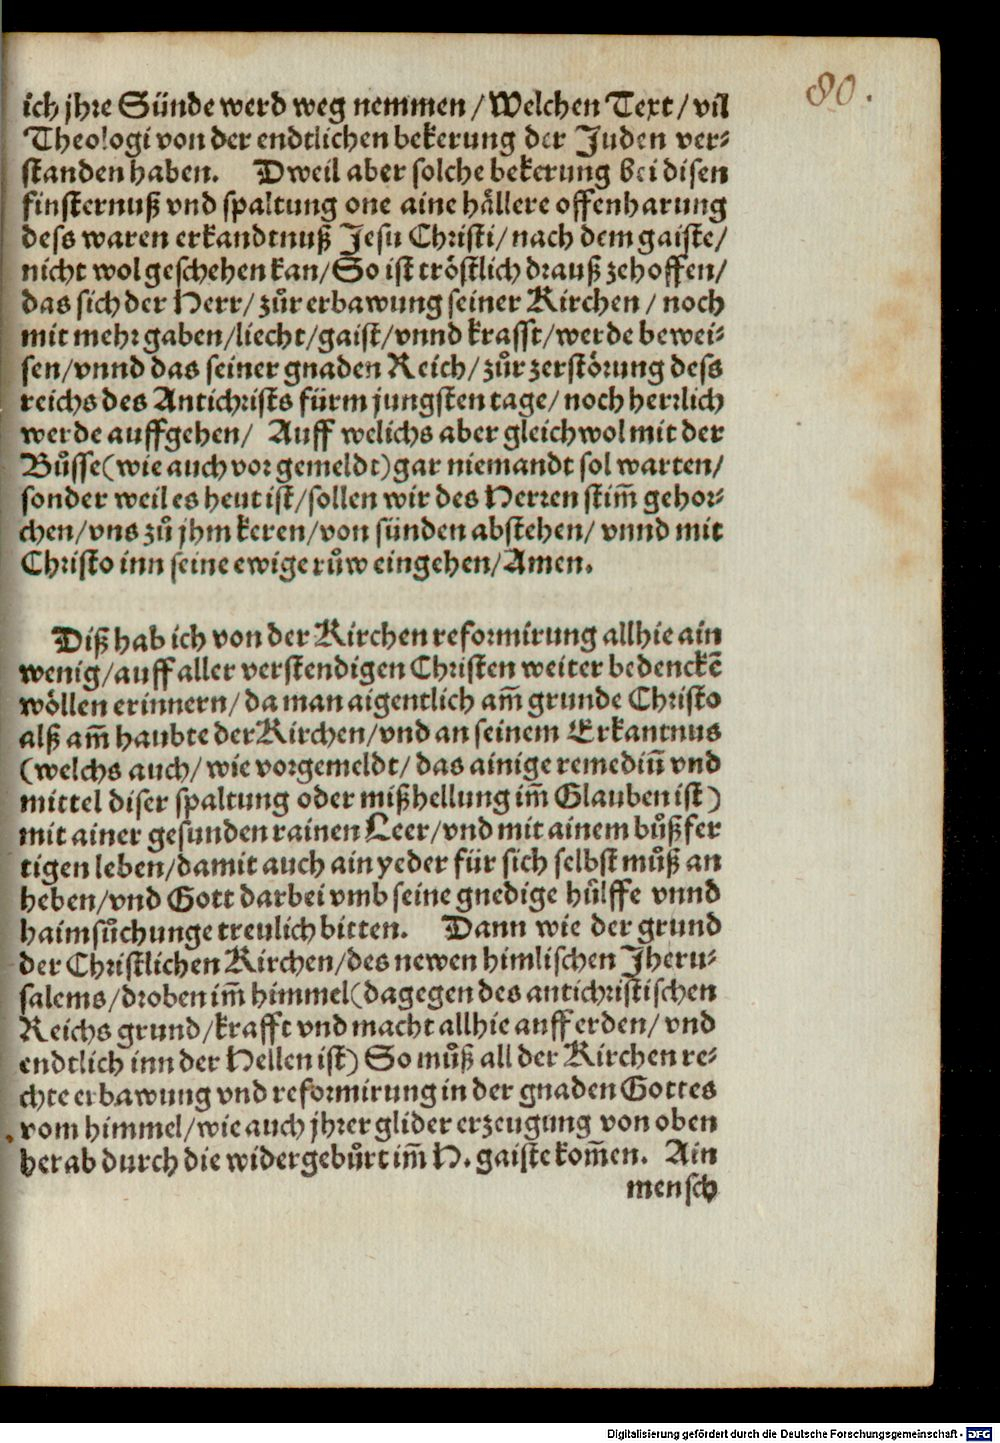 80.
ich jhre Sünde werd weg nemmen / Welchen Text / vil
Theologi von der endtlichen bekerung der Juden ver-
standen haben. Dweil aber solche bekerung bei disen
finsternuß vnd spaltung one aine hällere offenharung
dess waren erkandtnuß Jesu Christi / nach dem gaiste /
nicht wol geschehen kan / So ist tröstlich drauß zehoffen /
das sich der Herr / zůr erbawung seiner Kirchen / noch
mit mehr gaben / liecht / gaist / vnnd krafft / werde bewei-
sen / vnnd das seiner gnaden Reich / zůr zerstörung dess
reichs des Antichrists fürm jungsten tage / noch herrlich
werde auffgehen / Auff welichs aber gleichwol mit der
Bůsse (wie auch vor gemeldt) gar niemandt sol warten /
sonder weil es heut ist / sollen wir des Herren stim̄ gehor-
chen / vns zů jhm keren / von sünden abstehen / vnnd mit
Christo inn seine ewige růw eingehen / Amen.
Diß hab ich von der Kirchen reformirung allhie ain
wenig / auff aller verstendigen Christen weiter bedenckē
wöllen erinnern / da man aigentlich am̄ grunde Christo
alß am̄ haubte der Kirchen / vnd an seinem Erkantnus
(welchs auch / wie vorgemeldt / das ainige remediū vnd
mittel diser spaltung oder mißhellung im̄ Glauben ist)
mit ainer gesunden rainen Leer / vnd mit ainem bůßfer
tigen leben / damit auch ain yeder für sich selbst můß an
heben / vnd Gott darbei vmb seine gnedige hülffe vnnd
haimsůchunge treulich bitten. Dann wie der grund
der Christlichen Kirchen / des newen himlischen Jheru-
salems / droben im̄ himmel (dagegen des antichristischen
Reichs grund / krafft vnd macht allhie auff erden / vnd
endtlich inn der Hellen ist) So můß all der Kirchen re-
chte erbawung vnd reformirung in der gnaden Gottes
vom himmel / wie auch jhrer glider erzeugung von oben
herab durch die widergebůrt im̄ H. gaiste kom̄en. Ain
mensch
Digitalisierung gefördert durch die Deutsche Forschungsgemeinschaft - DFG